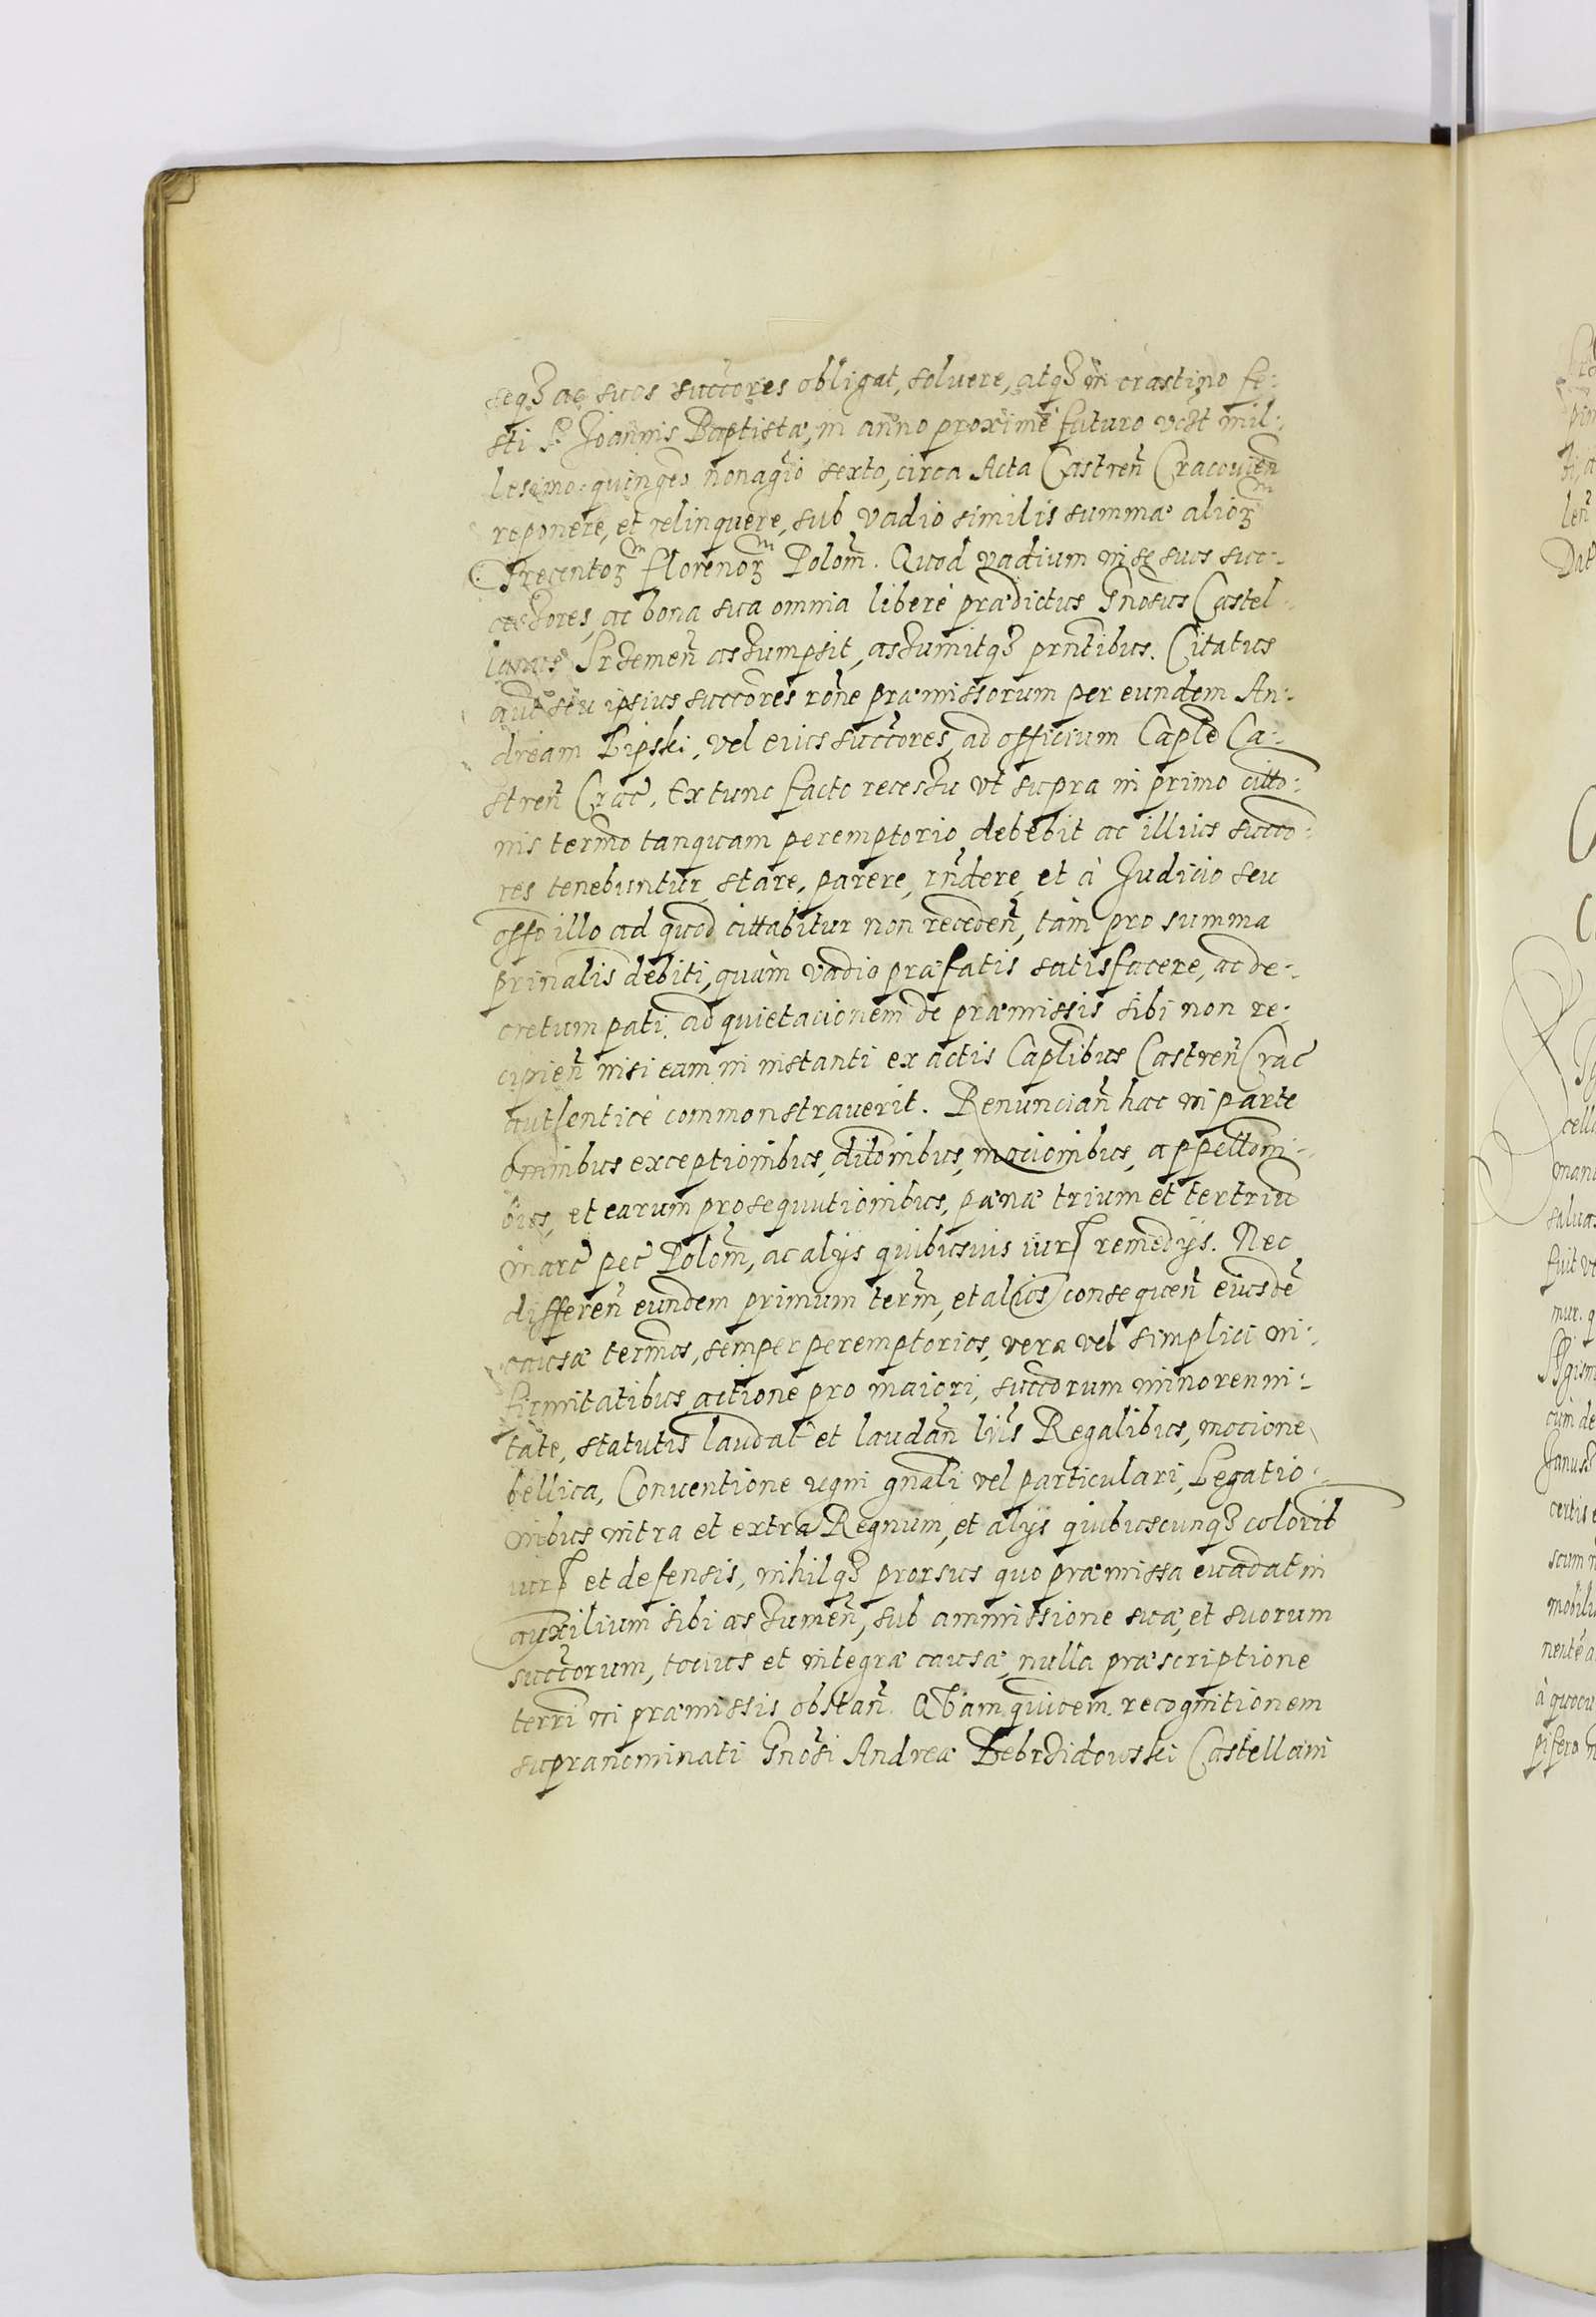 seqꝫ ac suos succores obligat, soluere, atqꝫ in crastino fe:
sti S. Joannis Baptistæ, in anno proxime futuro vdzt mil:
lesimo quinges nonagio sexto, circa Acta Castren̄ Cracouien̄
reponere, et relinquere, sub vadio similis summæ alioꝝ
Trecentoꝝ florenoꝝ Polom̄. Quod vadium in se suos suc:
cessores, ac bona sua omnia liberè prædictus Gnosus Castel:
lanus Srzemen̄ assumpsit, assumitqꝫ prntibus. Citatus
aut seu ipsius succores rōne præmissorum per eundem An:
dream Lipski, vel eius succores, ad officium Caple Ca:
stren̄ Crac̄. Ex tunc facto recessu vt supra in primo citto:
nis termo tanquam peremptorio debebit ac illius succo:
res tenebuntur, stare, parere, rndere, et à Judicio seu
offo illo ad quod cittabitur non receden̄, tam pro summa
prinalis debiti, quàm vadio præfatis satisfacere, ac de:
cretum pati, ad quietacionem de præmissis sibi non re:
cipien̄ nisi eam in instanti ex actis Caplibus Castren̄ Crac̄
autenticè commonstrauerit. Renuncian̄ hac in parte
omnibus exceptionibus, dilōnibus, mocionibus, appellōni:
bus, et earum prosequutionibus, pænæ trium et tertriū
marc̄ pec̄ Polom̄, ac alys quibusuis iurʃ remedys. Nec
differen̄ eundem primum term̄, et alios consequen̄ eiusdē
causæ termos, semper peremptorios, vera vel simplici in:
firmitatibus, actione pro maiori, succorum minorenni:
tate, statutis laudat̄ et laudan̄ lris Regalibus, mocione
bellica, Conuentione regni gnali vel particulari, Legatio:
nibus intra et extra Regnum, et alys quibuscunqꝫ colorib
iurʃ et defensis, nihilqꝫ prorsus quo præmissa euadat in
auxilium sibi assumen̄, sub ammissione suæ, et suorum
succorum, tocius et integræ causæ, nulla præscriptione
terri in præmissis obstan̄. Quam quidem recognitionem
supranominati Gnosi Andreæ Zebrzidowski Castellani